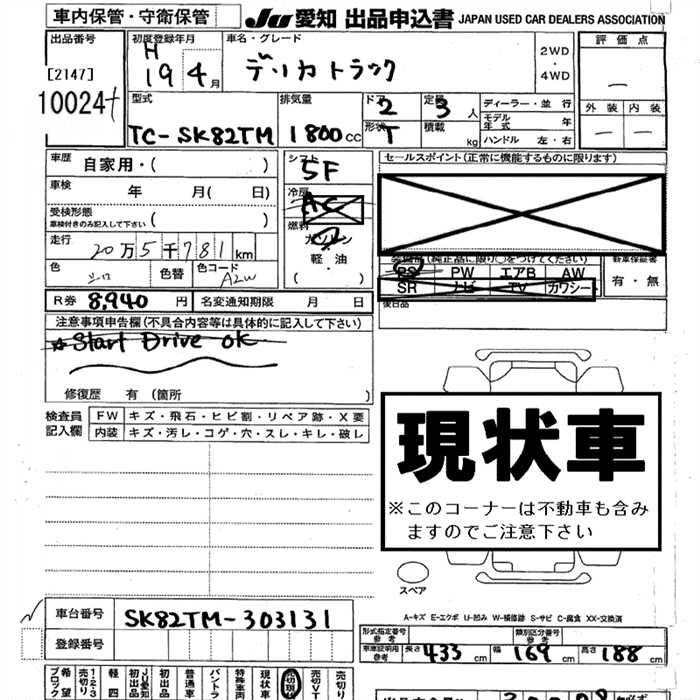 車内保管・守衛保管
JU 愛知 出品申込書 JAPAN USED CAR DEALERS ASSOCIATION
出品番号
[2147]
10024
初度登録年月
H
19 4 月
車名・グレード
デリカトラック
2WD
・
4WD
評価点
—
外装 内装
— —
型式
TC-SK82TM
排気量
1800 CC
ドア 2
形状 T
定員 3 人
積載 kg
ディーラー・並行
モデル年式 年
ハンドル 左・右
車歴 自家用・( )
車検 年 月( 日)
受検形態
車検付きのみ記入して下さい ( )
走行 20万5千781km
色 シロ 色替 色コード A2W
R券 8,940 円 名変通知期限 月 日
シフト
5F
冷房
AC
燃料
ガソリン
軽油・
( )
セールスポイント(正常に機能するものに限ります)
装備品(純正品に限り○をつけてください)
PS PW エアB AW
SR ナビ TV カワシー
新車保証書
有・無
後日品
注意事項申告欄(不具合内容等は具体的に記入して下さい)
☆Start Drive OK
修復歴 有 (箇所 )
検査員記入欄
FW キズ・飛石・ヒビ割・リペア跡・X要
内装 キズ・汚レ・コゲ・穴・スレ・キレ・破レ
現状車
※このコーナーは不動車も含み
ますのでご注意下さい
スペア
A-キズ E-エクボ U-凹み W-補修跡 S-サビ C-腐食 XX-交換済
車台番号 SK82TM-303131
登録番号
型式指定番号
参考
類別区分番号
参考
車車証明用
参考
長さ 433 cm 幅 169 cm 高さ 188 cm
希望ブロック
売切り 1・2・3
軽四
JU愛知初出品
初出品
普通車
バントラ
特殊車両
現状車
売切VT
売切り